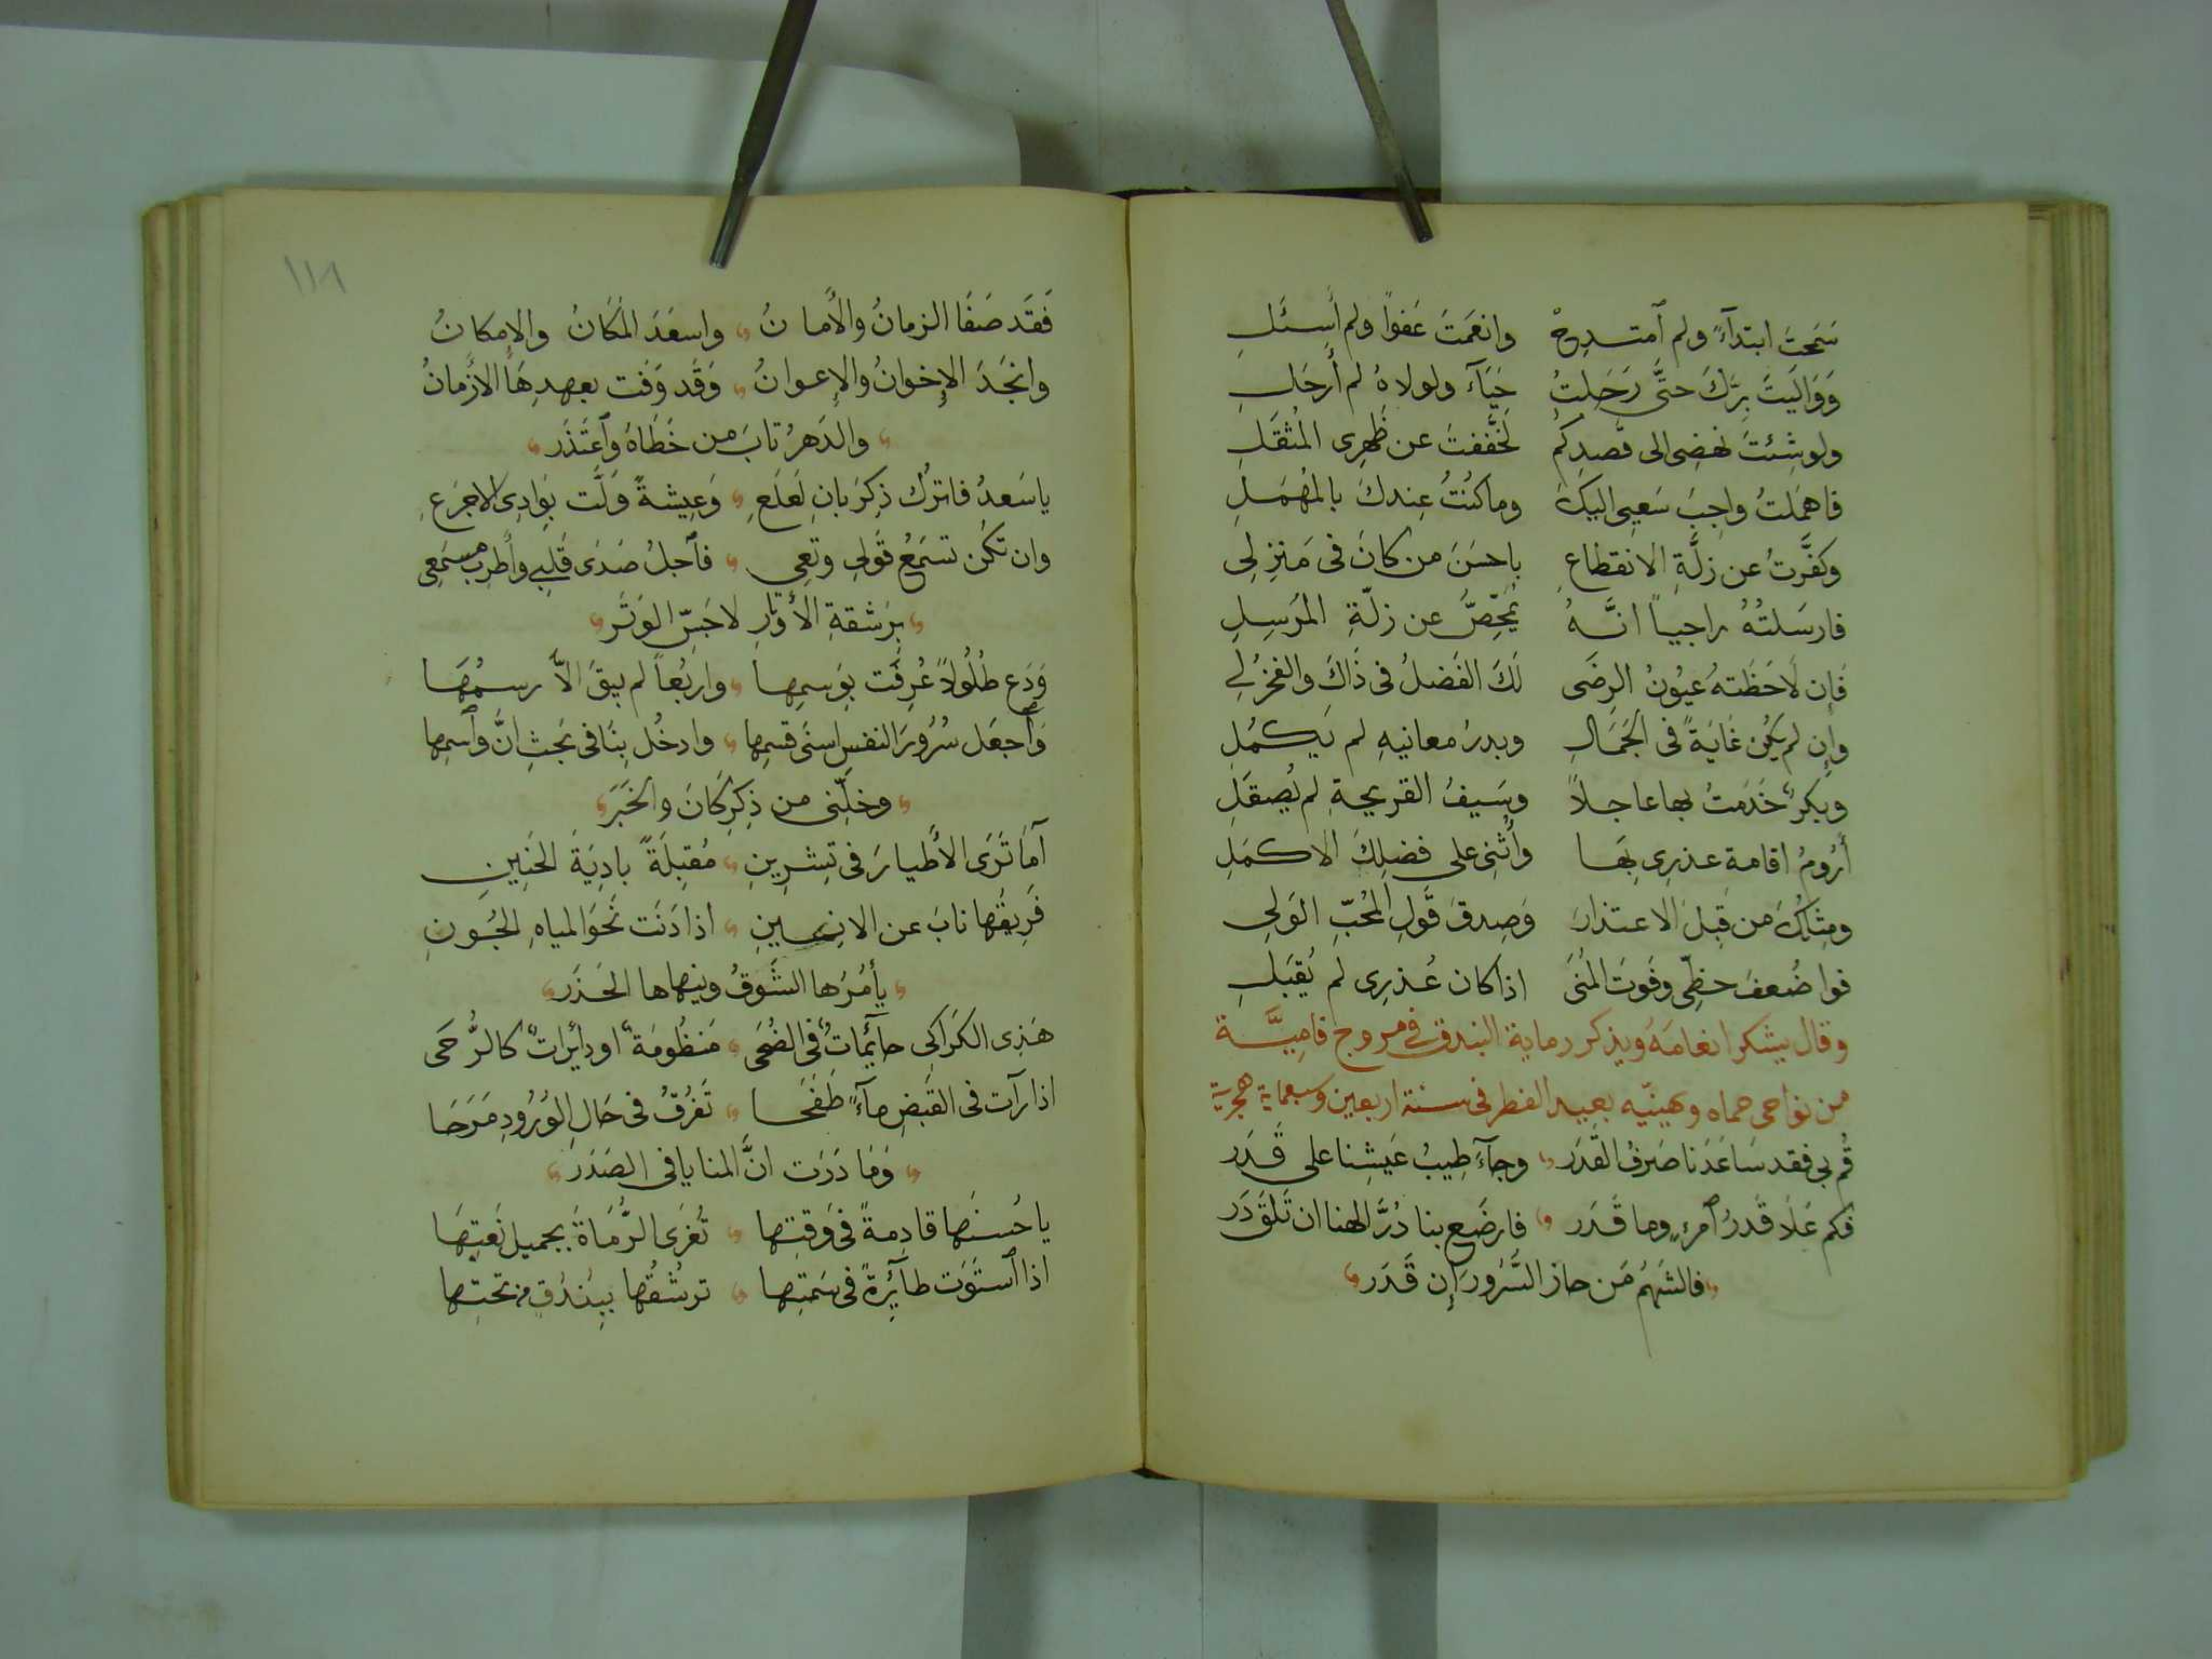 سَمَحتَ ابتدآءً ولم ٱمتدِحْ وانعَمتَ عَفواً ولم أسئَلِ
وَوَاليَتَ بِرَّكَ حتَّى رَحَلتُ حَيَآءً ولولاهُ لم أرحَلِ
ولو شِئتَ نهضِى الى قصدِكم لَخفَّفتَ عن ظَهِرى المُثقَلِ
فاهمَلتُ واجِبَ سَعيِى اليكَ وما كنتُ عِندكَ بالمُهمَلِ
وكفَّرتُ عن زلَّةِ الانقطاعِ باحسَنَ من كانَ فى مَنزِلِى
فارسَلتُهُ راجياً انَّهُ يُمَحِّصُ عن زلّةِ المُرسِلِ
فَإن لَاحَظَتهُ عيُونُ الرِضَى لَكَ الفَضلُ فى ذَاكَ والفخرُ لِى
وإن لم يكُن غَايَةً فى الجَمَالِ وبدرُ معانيهِ لم يَكمُلِ
وبكرٌ خَدَمتُ بها عاجلاً وسَيفُ القريحةِ لم يُصقَلِ
أرُومُ اقامة عذرِى بِهَا وأُثنِى على فضلِكَ الاكمَلِ
ومِثلُكَ من قبِلَ الاعتذارَ وَصِدقَ قَولِ المُحبِّ الوَلِى
فوا ضُعفَ حظِّى وفَوتَ المُنَى اذا كان عُذرِى لم يُقبَلِ
وقال يشكر انعامَهُ ويذكر رماية البندق فى مروج فامِيَّة
من نواحى حماه ويهنّيه بعيد الفطر فى سنة اربعين وسبعماية هجرية
قُم بى فقد سَاعَدَنا صَرفُ القَدَر وجآءَ طِيبُ عَيشِنا على قَدَر
فكم عَلَا قَدرُ ٱمرءٍ وما قَدَر فارضَع بنا دُرَّ الهنا ان تَلقَ دَر
فالشَهمُ مَن حاز السُّرُورَ إن قَدَر
١١٨
فَقَد صَفَا الزمانُ والأَمانُ واسعَدَ المَكانُ والإمكانُ
وانجَدَ الإخوانُ والإعوانُ وَقَد وَفَت بعهدِهَا الأزمانُ
والدَهرُ تابَ من خَطَاهُ وٱعتَذَر
يا سَعدُ فاترُك ذِكرَ بانِ لَعلَعِ وَعِيشةً وَلَّت بِوَادِى الاجرَعِ
وان تكُن تسمَعُ قَولى وتعِى فٱجلُ صَدَى قَلبى وأطرِب مسمَعِى
برَشقةِ الأوتارِ لا جَسِّ الوَتَر
وَدَع طُلُولاً عُرِفَت بوَسمِها واربُعاً لم يبقَ الّا رسمُهَا
وٱجعَل سُرُورَ النفسِ اسنَى قسمِها وادخُل بِنَا فى بَحثِ انَّ وٱسمِها
وخلِّنى من ذِكرِ كَانَ والخَبَر
أمَا تَرَى الأَطيارَ فى تِشرِينِ مُقبِلَةً بادِيَةَ الحَنِينِ
فَرِيقُها نابَ عن الانِينِ اذا دَنَت نَحوَ المياهِ الجُونِ
يأمُرُها الشَوقُ وينهاها الحَذَر
هَذِى الكَراكِى حائِماتٌ فى الضُحَى مَنظُومَةٌ او دائِراتٌ كالرُحَى
اذا رآت فى القَبضِ مآءً طَفَحا تَفرُقُ فى حَالِ الوُرُودِ مَرَحَا
وَمَا دَرَت انَّ المنايا فى الصَدَر
يا حُسنَها قادِمةً فى وَقتِها تُغرَى الرُّمَاةَ بجميلِ نَعتِهَا
اذا ٱستَوَت طآئِرةً فى سَمتِها ترشُقُها ببُندُقٍ من تحتِها